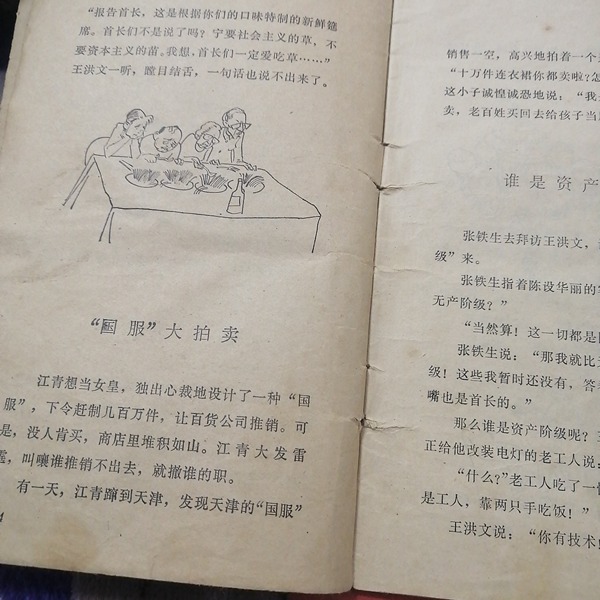 “报告首长，这是根据你们的口味特制的新鲜筵
席。首长们不是说了吗？宁要社会主义的草，不
要资本主义的苗。我想，首长们一定爱吃草……”
王洪文一听，瞠目结舌，一句话也说不出来了。
“国服”大拍卖
江青想当女皇，独出心裁地设计了一种“国
服”，下令赶制几百万件，让百货公司推销。可
是，没人肯买，商店里堆积如山。江青大发雷
霆，叫嚷谁推销不出去，就撤谁的职。
有一天，江青蹿到天津，发现天津的“国服”
4
销售一空，高兴地拍着一个
“十万件连衣裙你都卖啦？
这小子诚惶诚恐地说：“我
卖，老百姓买回去给孩子当
谁是资产
张铁生去拜访王洪文，
级”来。
张铁生指着陈设华丽的
无产阶级？”
“当然算！这一切都是
张铁生说：“那我就比
级！这些我暂时还没有，
嘴也是首长的。”
那么谁是资产阶级呢？
正给他改装电灯的老工人说：
“什么？”老工人吃了一
是工人，靠两只手吃饭！”
王洪文说：“你有技术